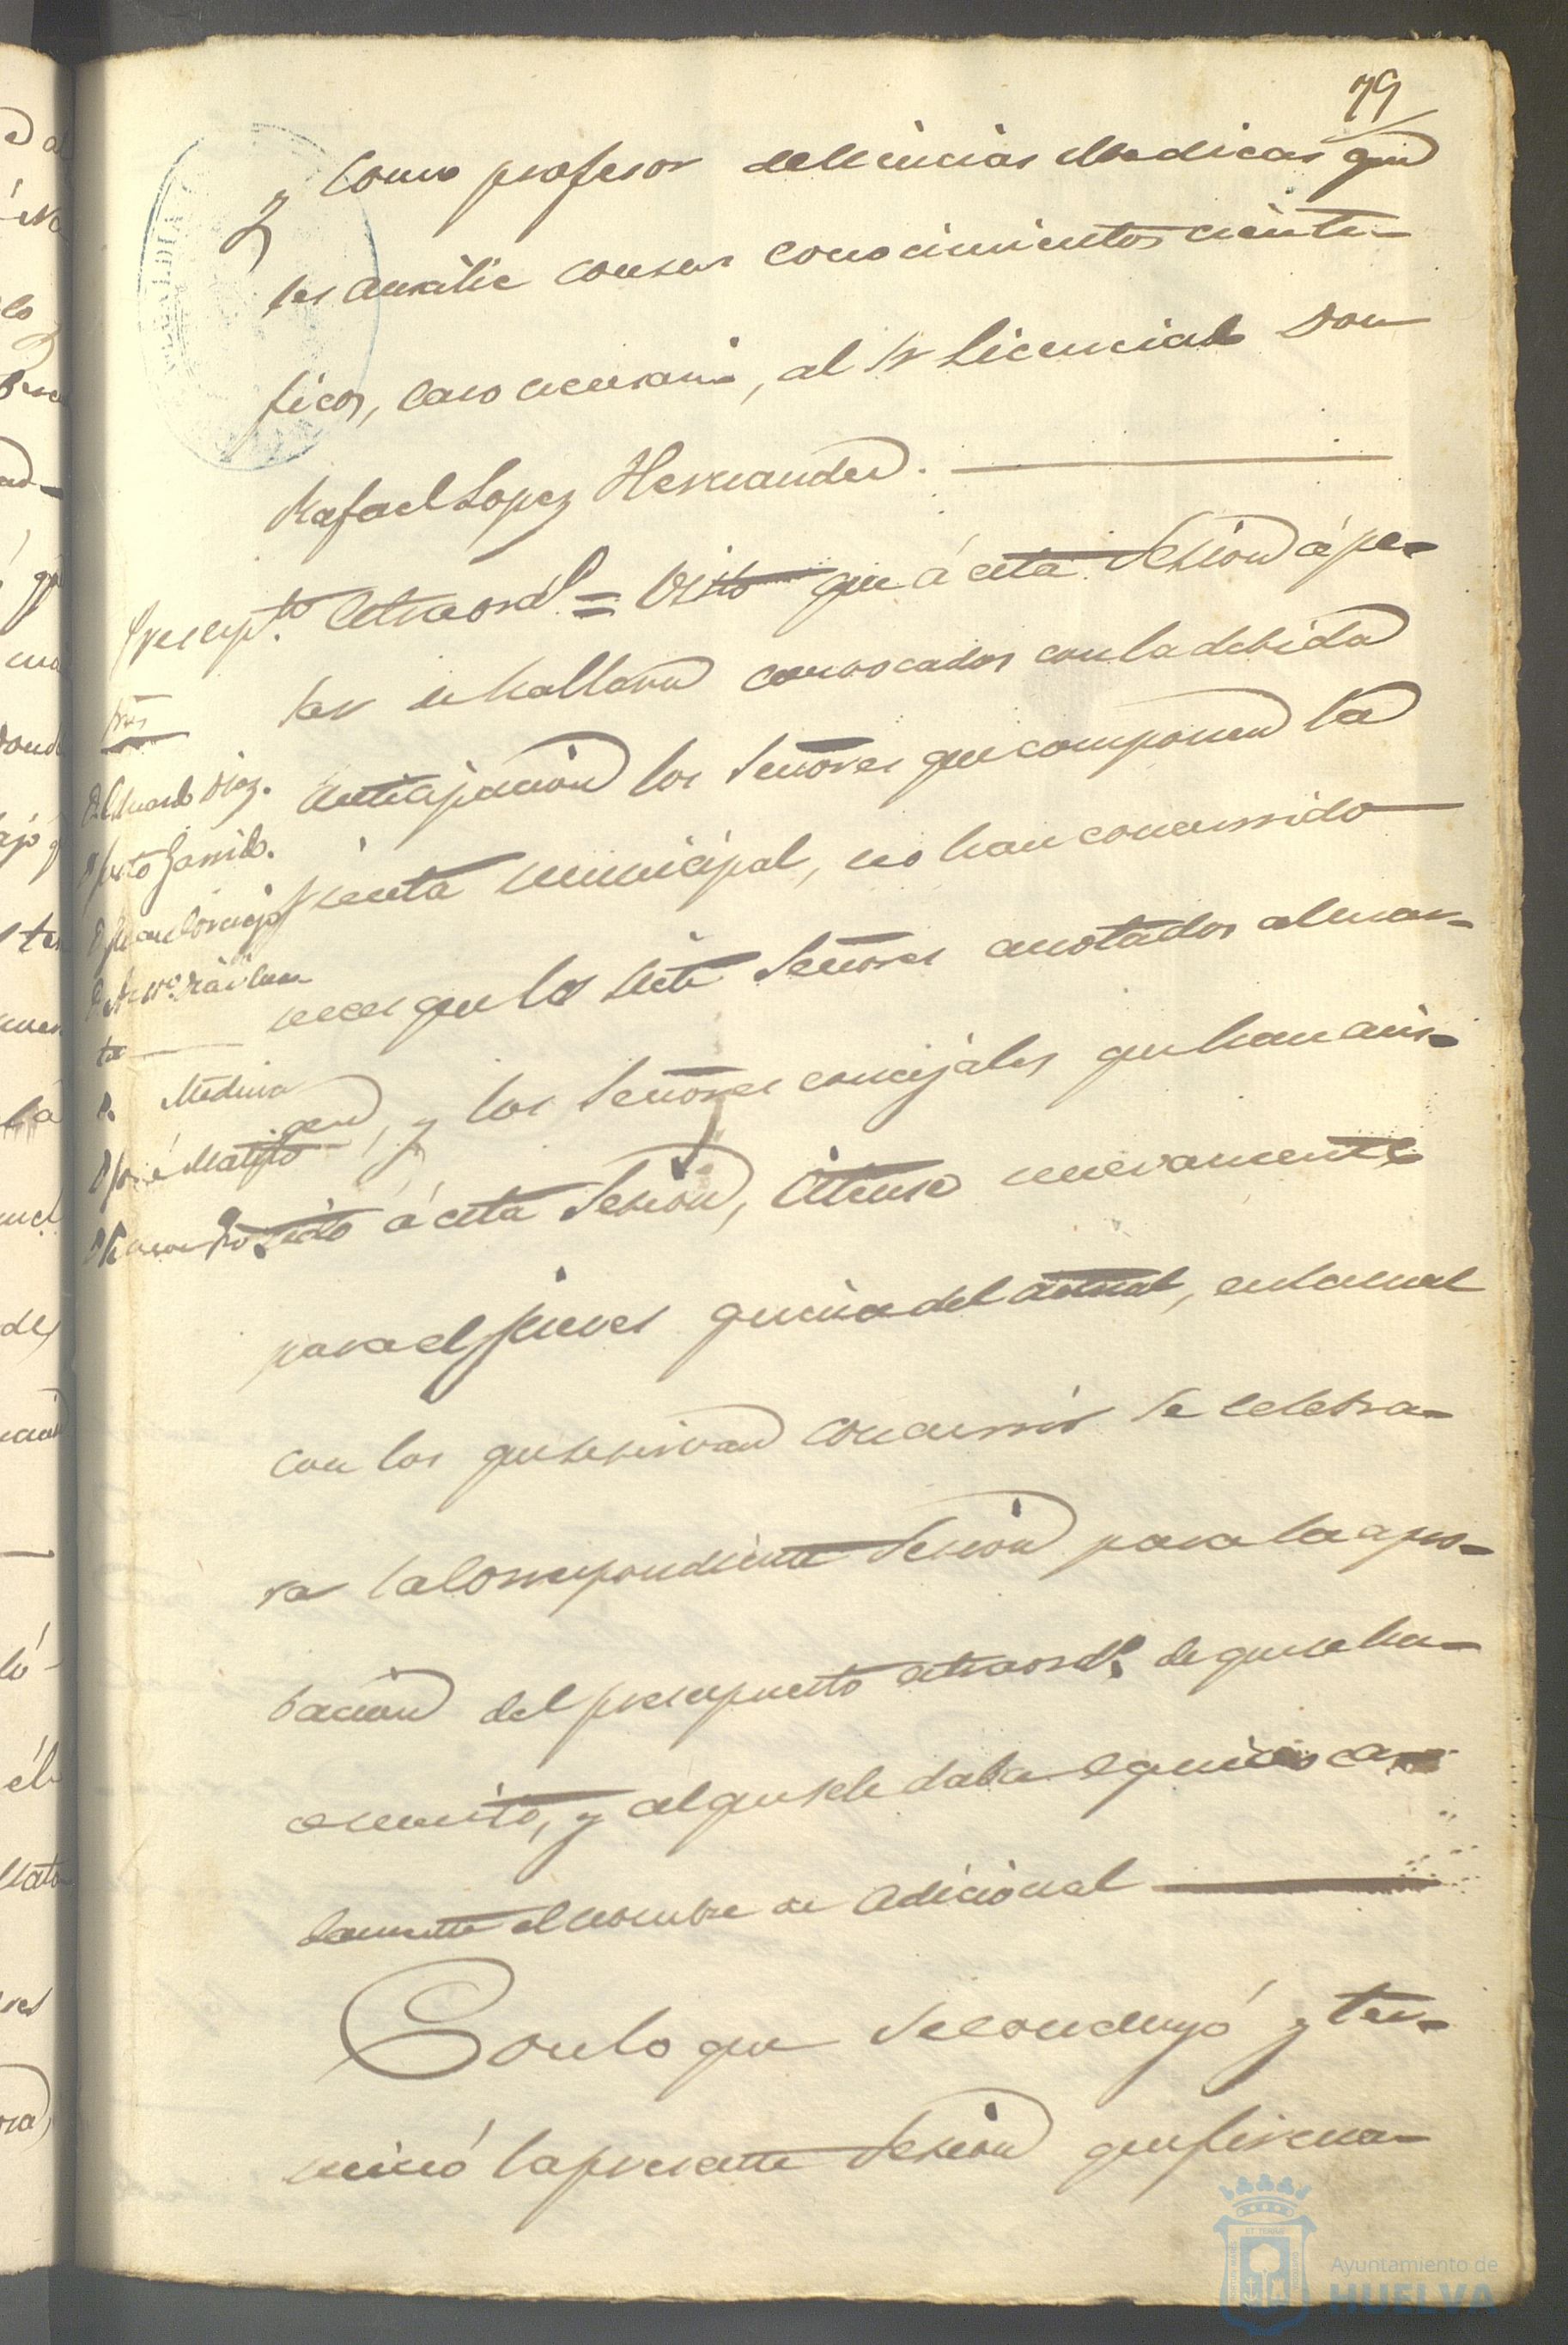 79
y como profesor de Ciencias Medicas que
les auxilie con sus conocimientos cienti-
ficos, caso necesario, al Sr Licenciado Don
Rafael Lopez Hernandez.
Presup.to extraord.o = Visto que á esta Sesion á pe-
sar de hallarse convocados con la debida
anticipacion los Señores que componen la
Junta municipal, no han concurrido
mas que los siete Señores anotados al mar-
gen, y los Señores concejales que han asis-
tido á esta Sesion, citense nuevamente
para el jueves quince del actual, en la cual
con los que se sirvan concurrir se celebra-
rá la correspondiente Sesion para la apro-
bacion del presupuesto extraord.o de que se ha
, y al que se le daba equivoca-
damente el nombre de adicional
Con lo que se concluyó y ter-
minó la presente Sesion que firma-
Sres
D. Eduardo Diaz.
D. Justo Garrido.
D. Juan Cornejo
D. Anto.
D. Medina
D. José
D.
ALCALDIA
Ayuntamiento de
HUELVA